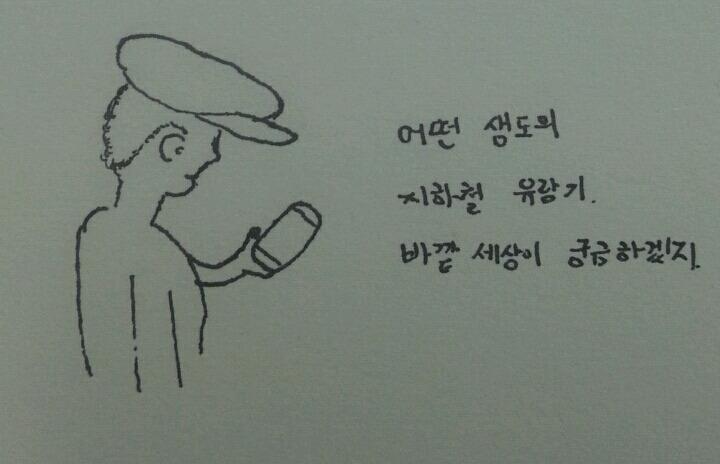 어떤 샘도의
지하철 유람기.
바깥 세상이 궁금하겠지.